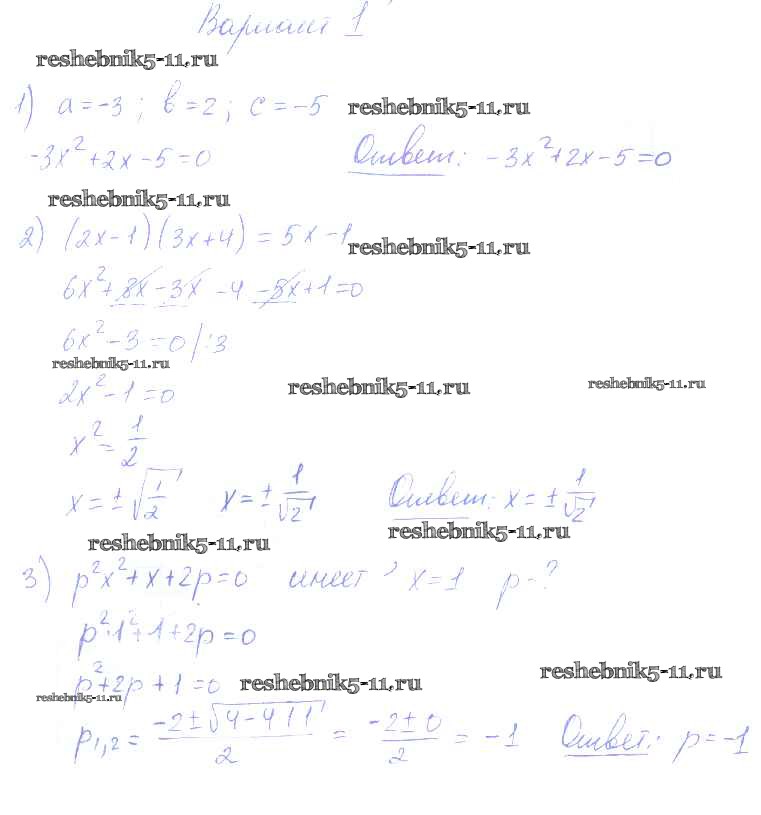 Вариант 1
reshebnik5-11.ru
1) a = -3 ; b = 2 ; c = -5 reshebnik5-11.ru
-3x² + 2x - 5 = 0 Ответ: -3x² + 2x - 5 = 0
reshebnik5-11.ru
2) (2x - 1)(3x + 4) = 5x - 1 reshebnik5-11.ru
6x² + 8x - 3x - 4 - 5x + 1 = 0
6x² - 3 = 0 /:3
reshebnik5-11.ru
2x² - 1 = 0 reshebnik5-11.ru reshebnik5-11.ru
x² = 1/2
x = ± √(1/2) x = ± 1/√2 Ответ: x = ± 1/√2
reshebnik5-11.ru reshebnik5-11.ru
3) p²x² + x + 2p = 0 имеет x = 1 p - ?
p²·1² + 1 + 2p = 0
p² + 2p + 1 = 0 reshebnik5-11.ru reshebnik5-11.ru
reshebnik5-11.ru
p₁,₂ = (-2 ± √(4 - 4·1·1))/2 = (-2 ± 0)/2 = -1 Ответ: p = -1